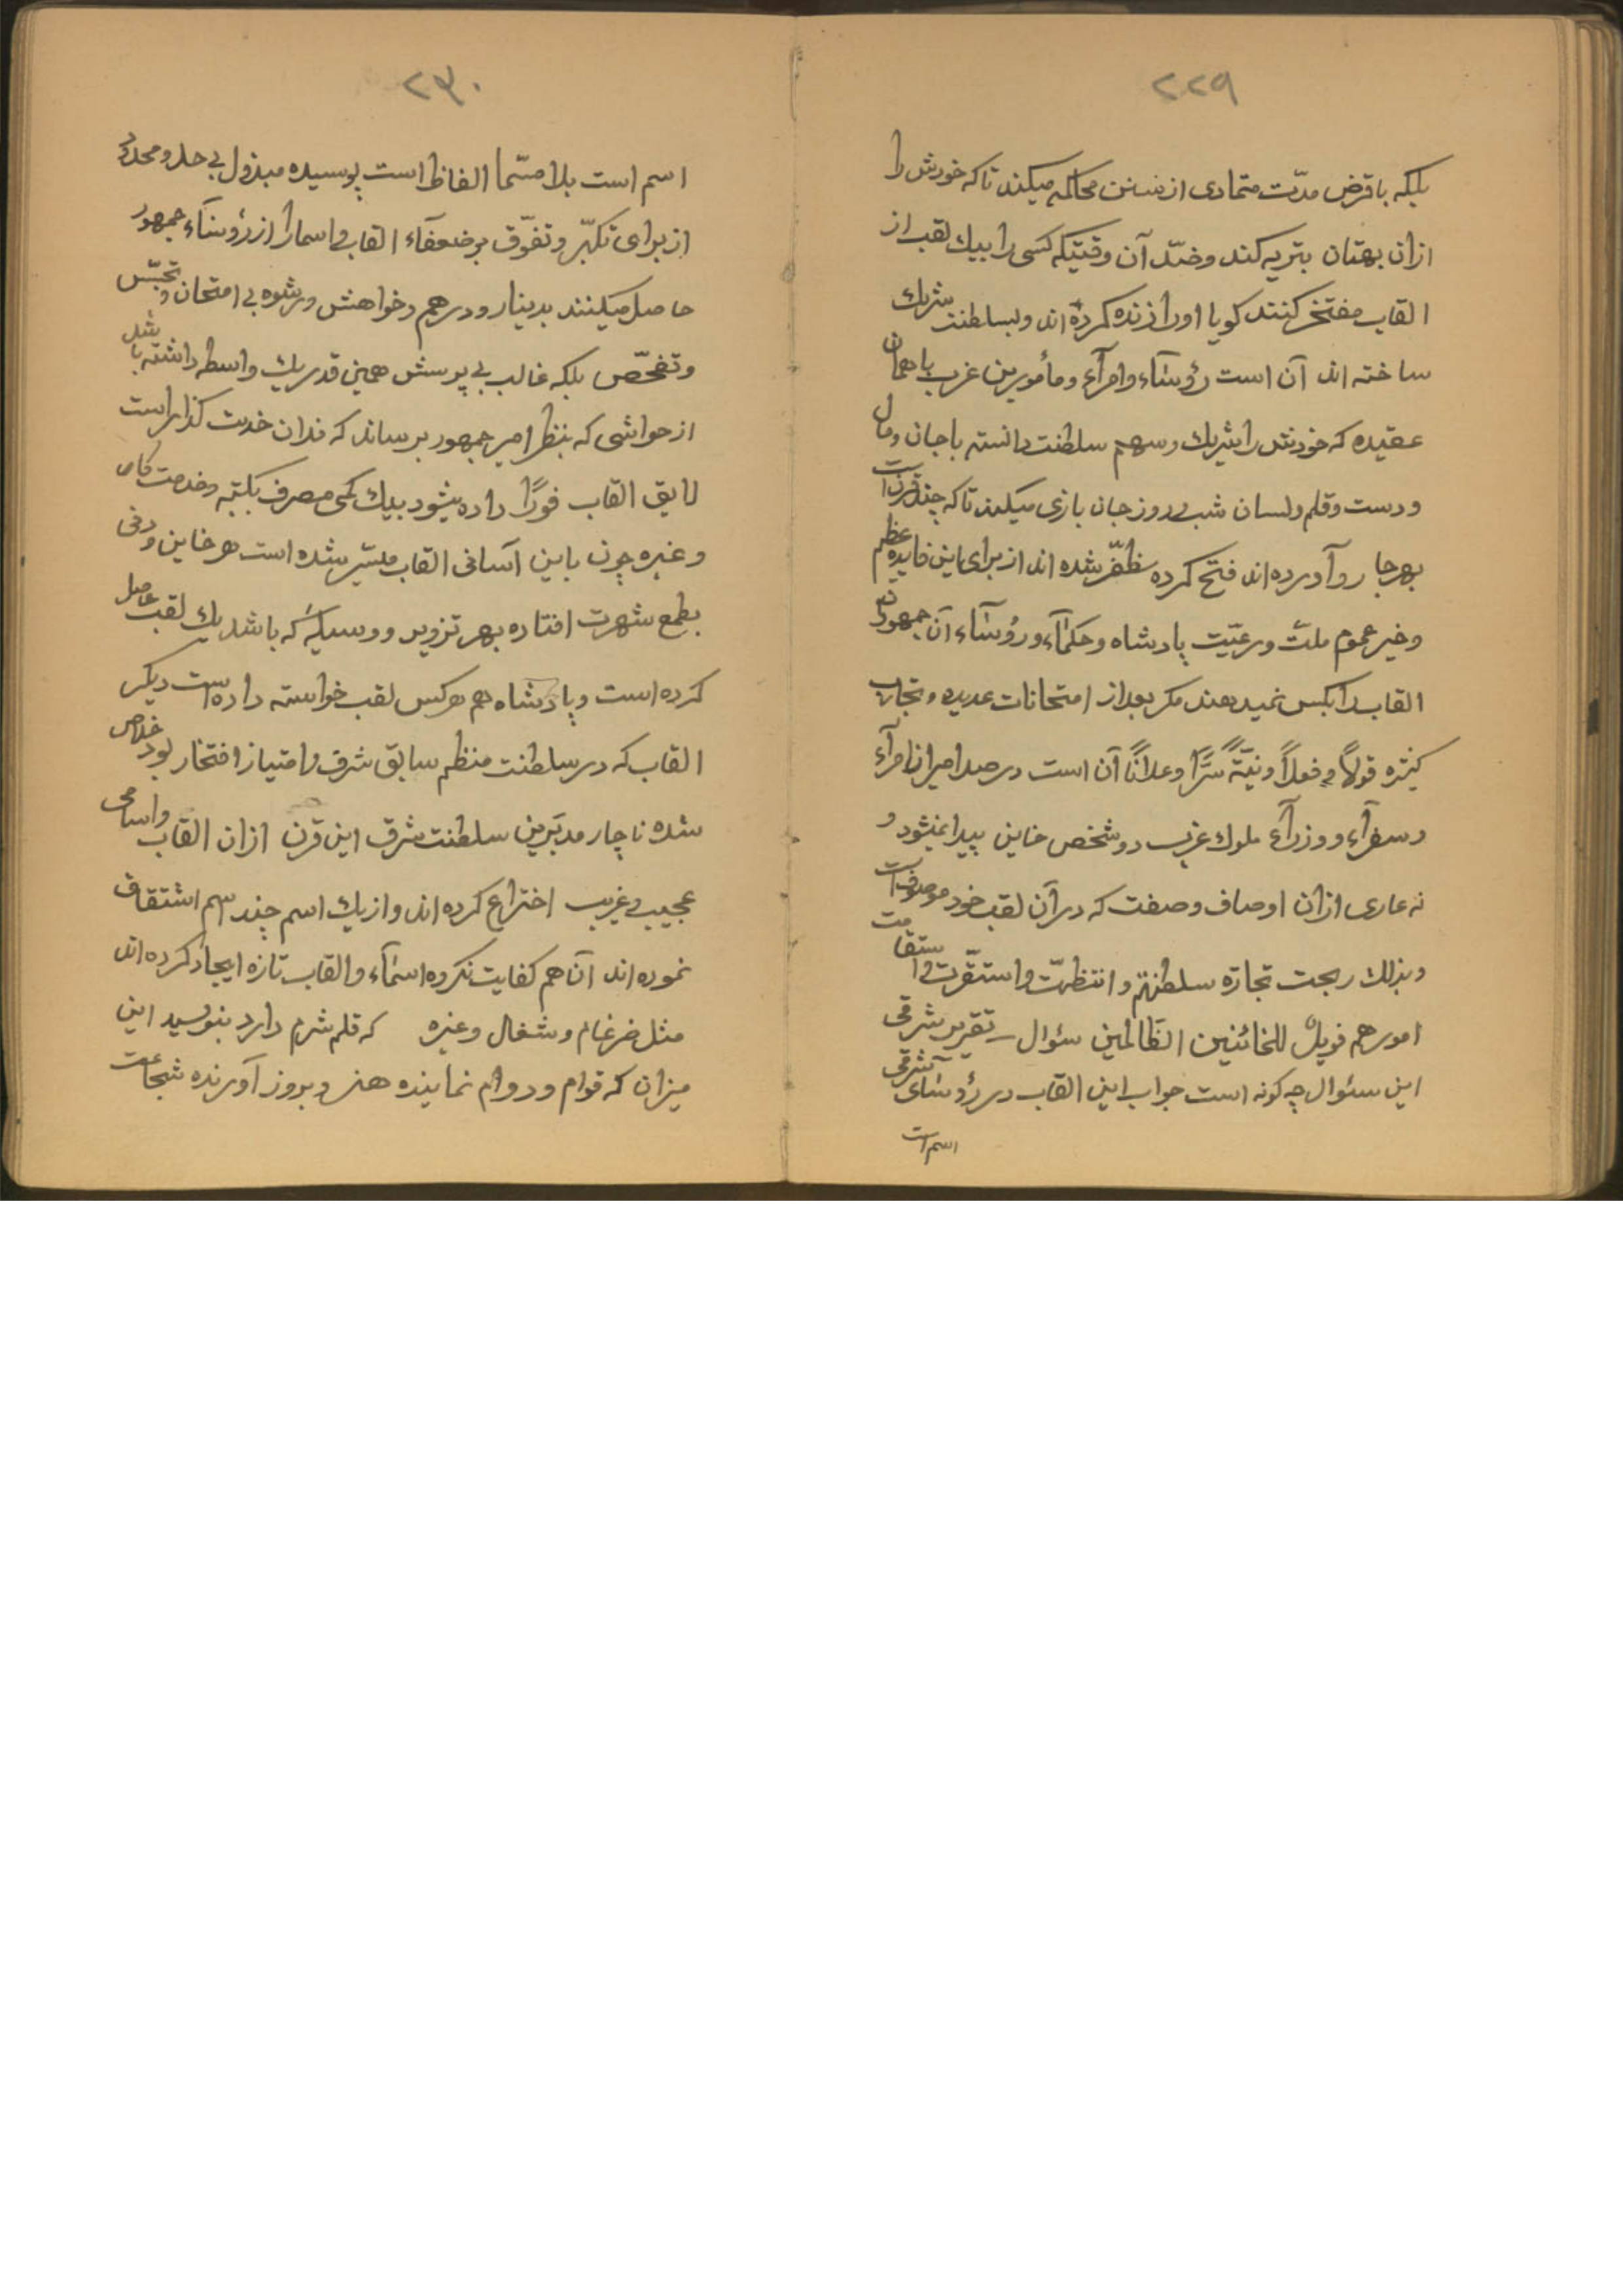 ٢٢٩
بلکه باقرض مدّت متمادی از سنن محاکمه میکند تا که خودش را
ازان بهتان بتریه کند وضدّ آن وقتیکه کسی را بیك لقب از
القاب مفتخر کنند کویا اورا زنده کرده اند وبسلطنت شریك
ساخته اند آن است رؤسآء وامرآء ومأمورین غرب باهمان
عقیده که خودش را شریك وسهم سلطنت دانسته باجان ومال
ودست وقلم ولسان شب وروز جان بازی میکند تا که چند قرن است
بهرجا روآورده اند فتح کرده مظفّر شده اند از برای این فایده عظیم
وخیر عموم ملت ورعیّت پادشاه وحکمآء ورؤسآء آن جمهور
القاب را بکس نمیدهند مکر بعد از امتحانات عدیده وتجارب
کثیره قولاً وفعلاً ونیّةً سرًّا وعلانًا آن است در صد امیر از امرآء
وسفرآء ووزرآء ملوك غرب دو شخص خاین پیدا نمیشود و
نه عاری ازان اوصاف وصفت که درآن لقب خود موصوف است
وبذلك ربحت تجارة سلطنتهم وانتظمت واستقرّت واستقامت
امورهم فویلٌ للخائنین الظّالمین سئوال تقریر شرقی
این سئوال چه کونه است جواب این القاب در رؤسآی شرقی
اسم است
٢٣٠
اسم است بلا مسّما الفاظ است پوسیده مبذول بی حد و
از برای تکبّر وتفوّق بر ضعفآء القاب واسمارا از رؤسآء جمهور
حاصل میکنند بدینار ودرهم وخواهش ورشوه بی امتحان وتجسّس
وتفحّص بلکه غالب بی پرسش همین قدر یك واسطه داشته باشد
از حواشی که بنظر امیر جمهور برساند که فلان خدمت کذار است
لایق القاب فورًا داده میشود بیك کمی مصرف
وغیره چون باین آسانی القاب میسّر شده است هر خاین ودنی
بطمع شهرت افتاده بهر تزویر ووسیلهٔ که باشد یك لقب حاصل
کرده است وپادشاه هم هرکس لقب خواسته داده است دیکر
القاب که در سلطنت منظم سابق شرف وامتیاز افتخار بود خلاص
شده ناچار مدبّرین سلطنت شرق این قرن ازان القاب واسامی
عجیب وغریب اختراع کرده اند واز یك اسم چند اسم اشتقاق
نموده اند آن هم کفایت نکرده اسمآء والقاب تازه ایجاد کرده اند
مثل ضرغام وشغال وغیره که قلم شرم دارد بنویسد این
میزان که قوام ودوام نماینده هنر وبروز آورنده شجاعت